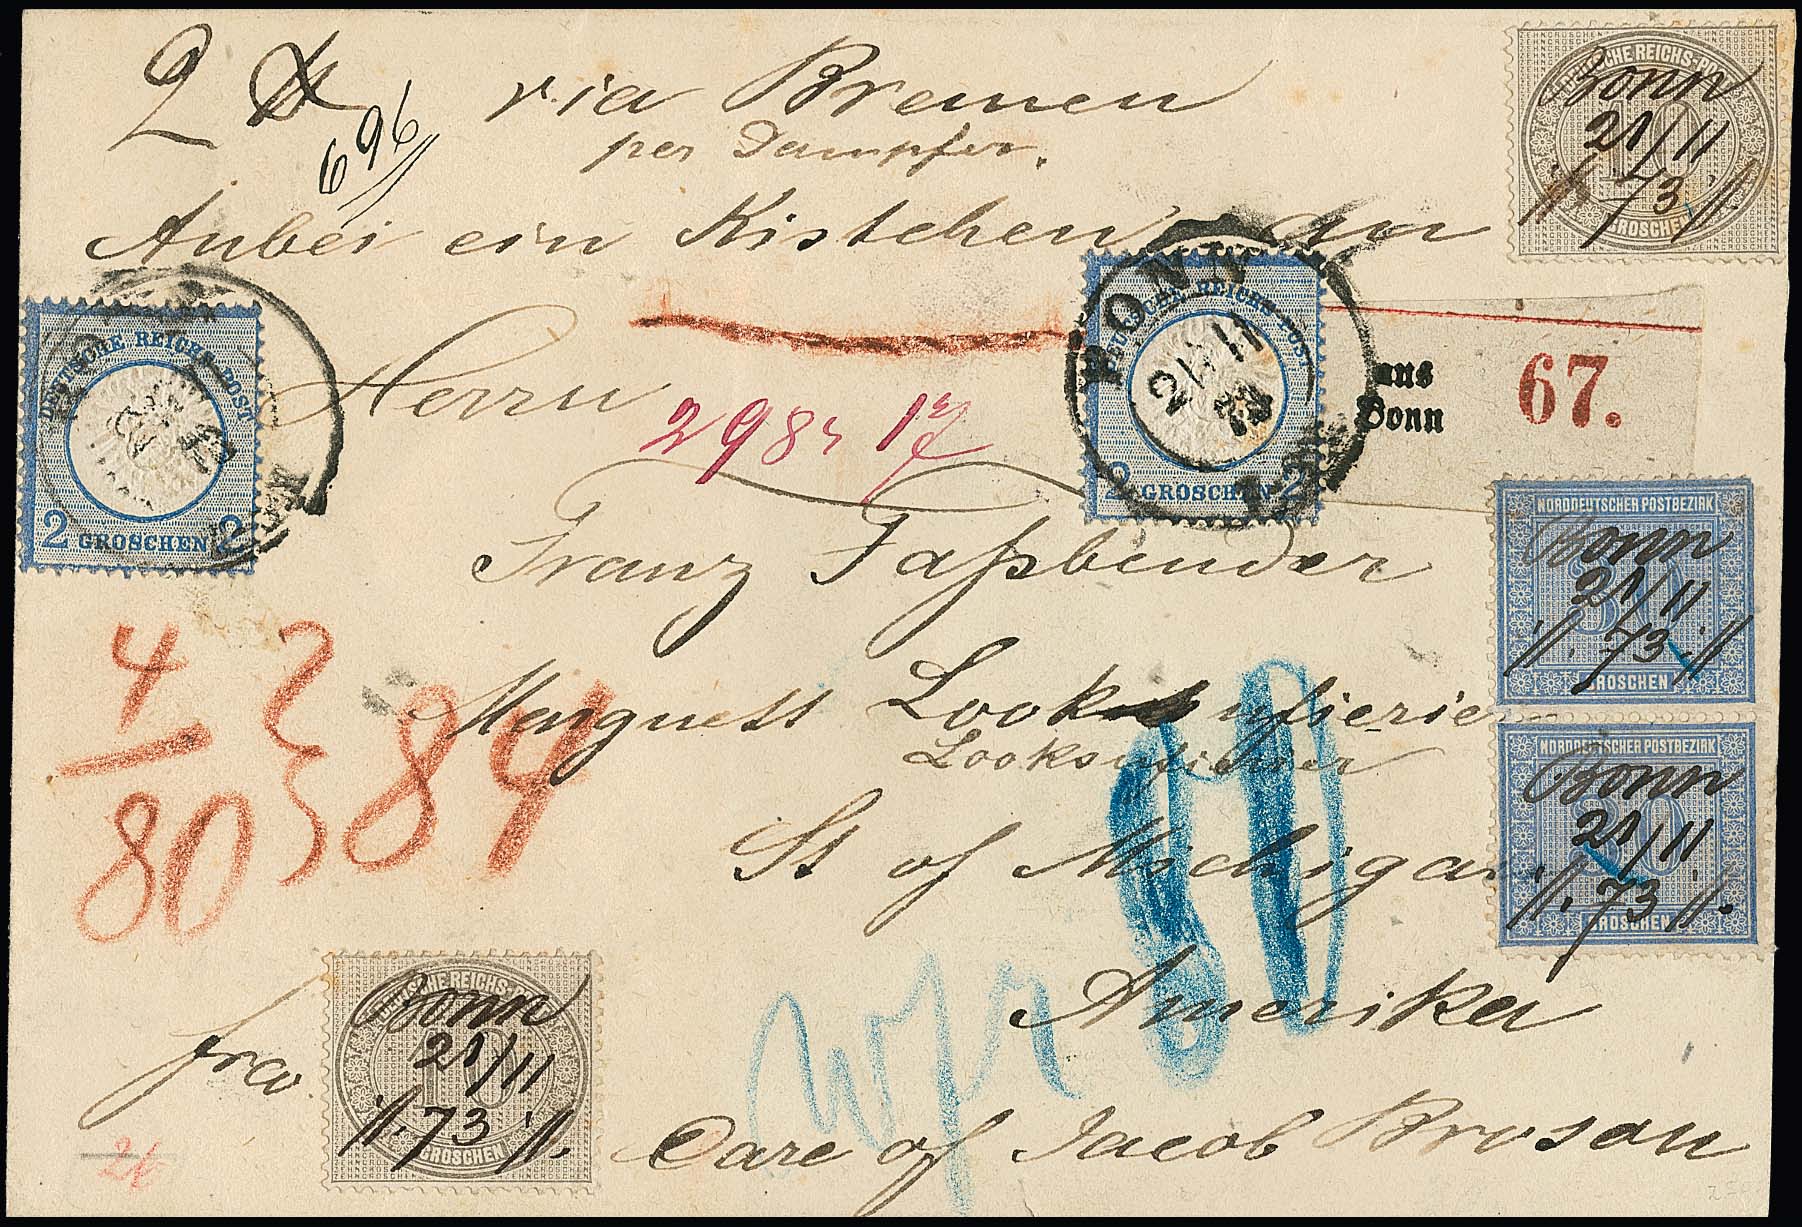 2 ℔ via Bremen
696
per Dampfer.
Anbei ein Kistchen an
Herrn
298 17
aus
Bonn
67.
Franz Faßbender
Marquett
St of Michigan
Amerika
Care of Jacob
fro.
wfr
4
80
84
80
DEUTSCHE REICHS-POST
10
GROSCHEN
Bonn
21/11
73
DEUTSCHE REICHS POST
2 GROSCHEN 2
DEUTSCHE REICHS POST
2 GROSCHEN 2
BONN
21 11
73
NORDDEUTSCHER POSTBEZIRK
30
GROSCHEN
Bonn
21/11
73
NORDDEUTSCHER POSTBEZIRK
30
GROSCHEN
Bonn
21/11
73
DEUTSCHE REICHS-POST
10
GROSCHEN
Bonn
21/11
73